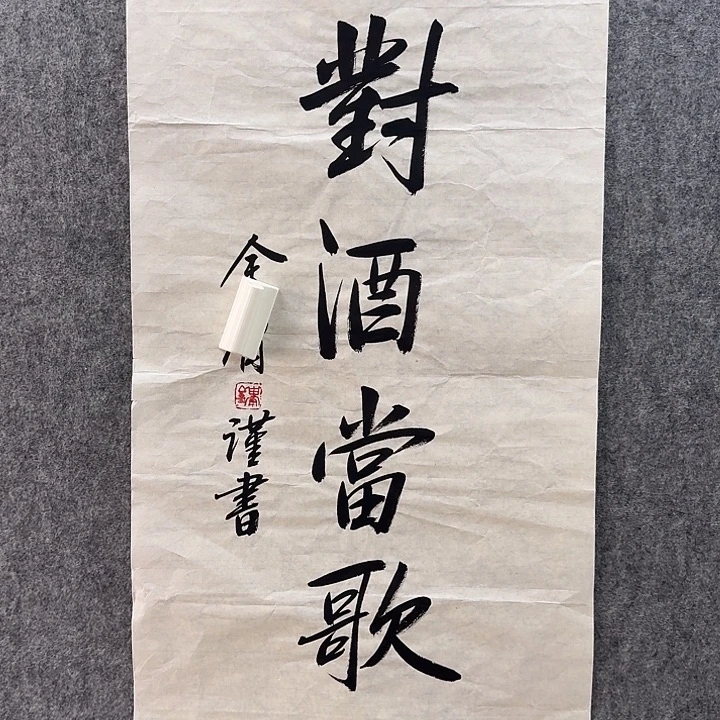 對酒當歌
金
謹書